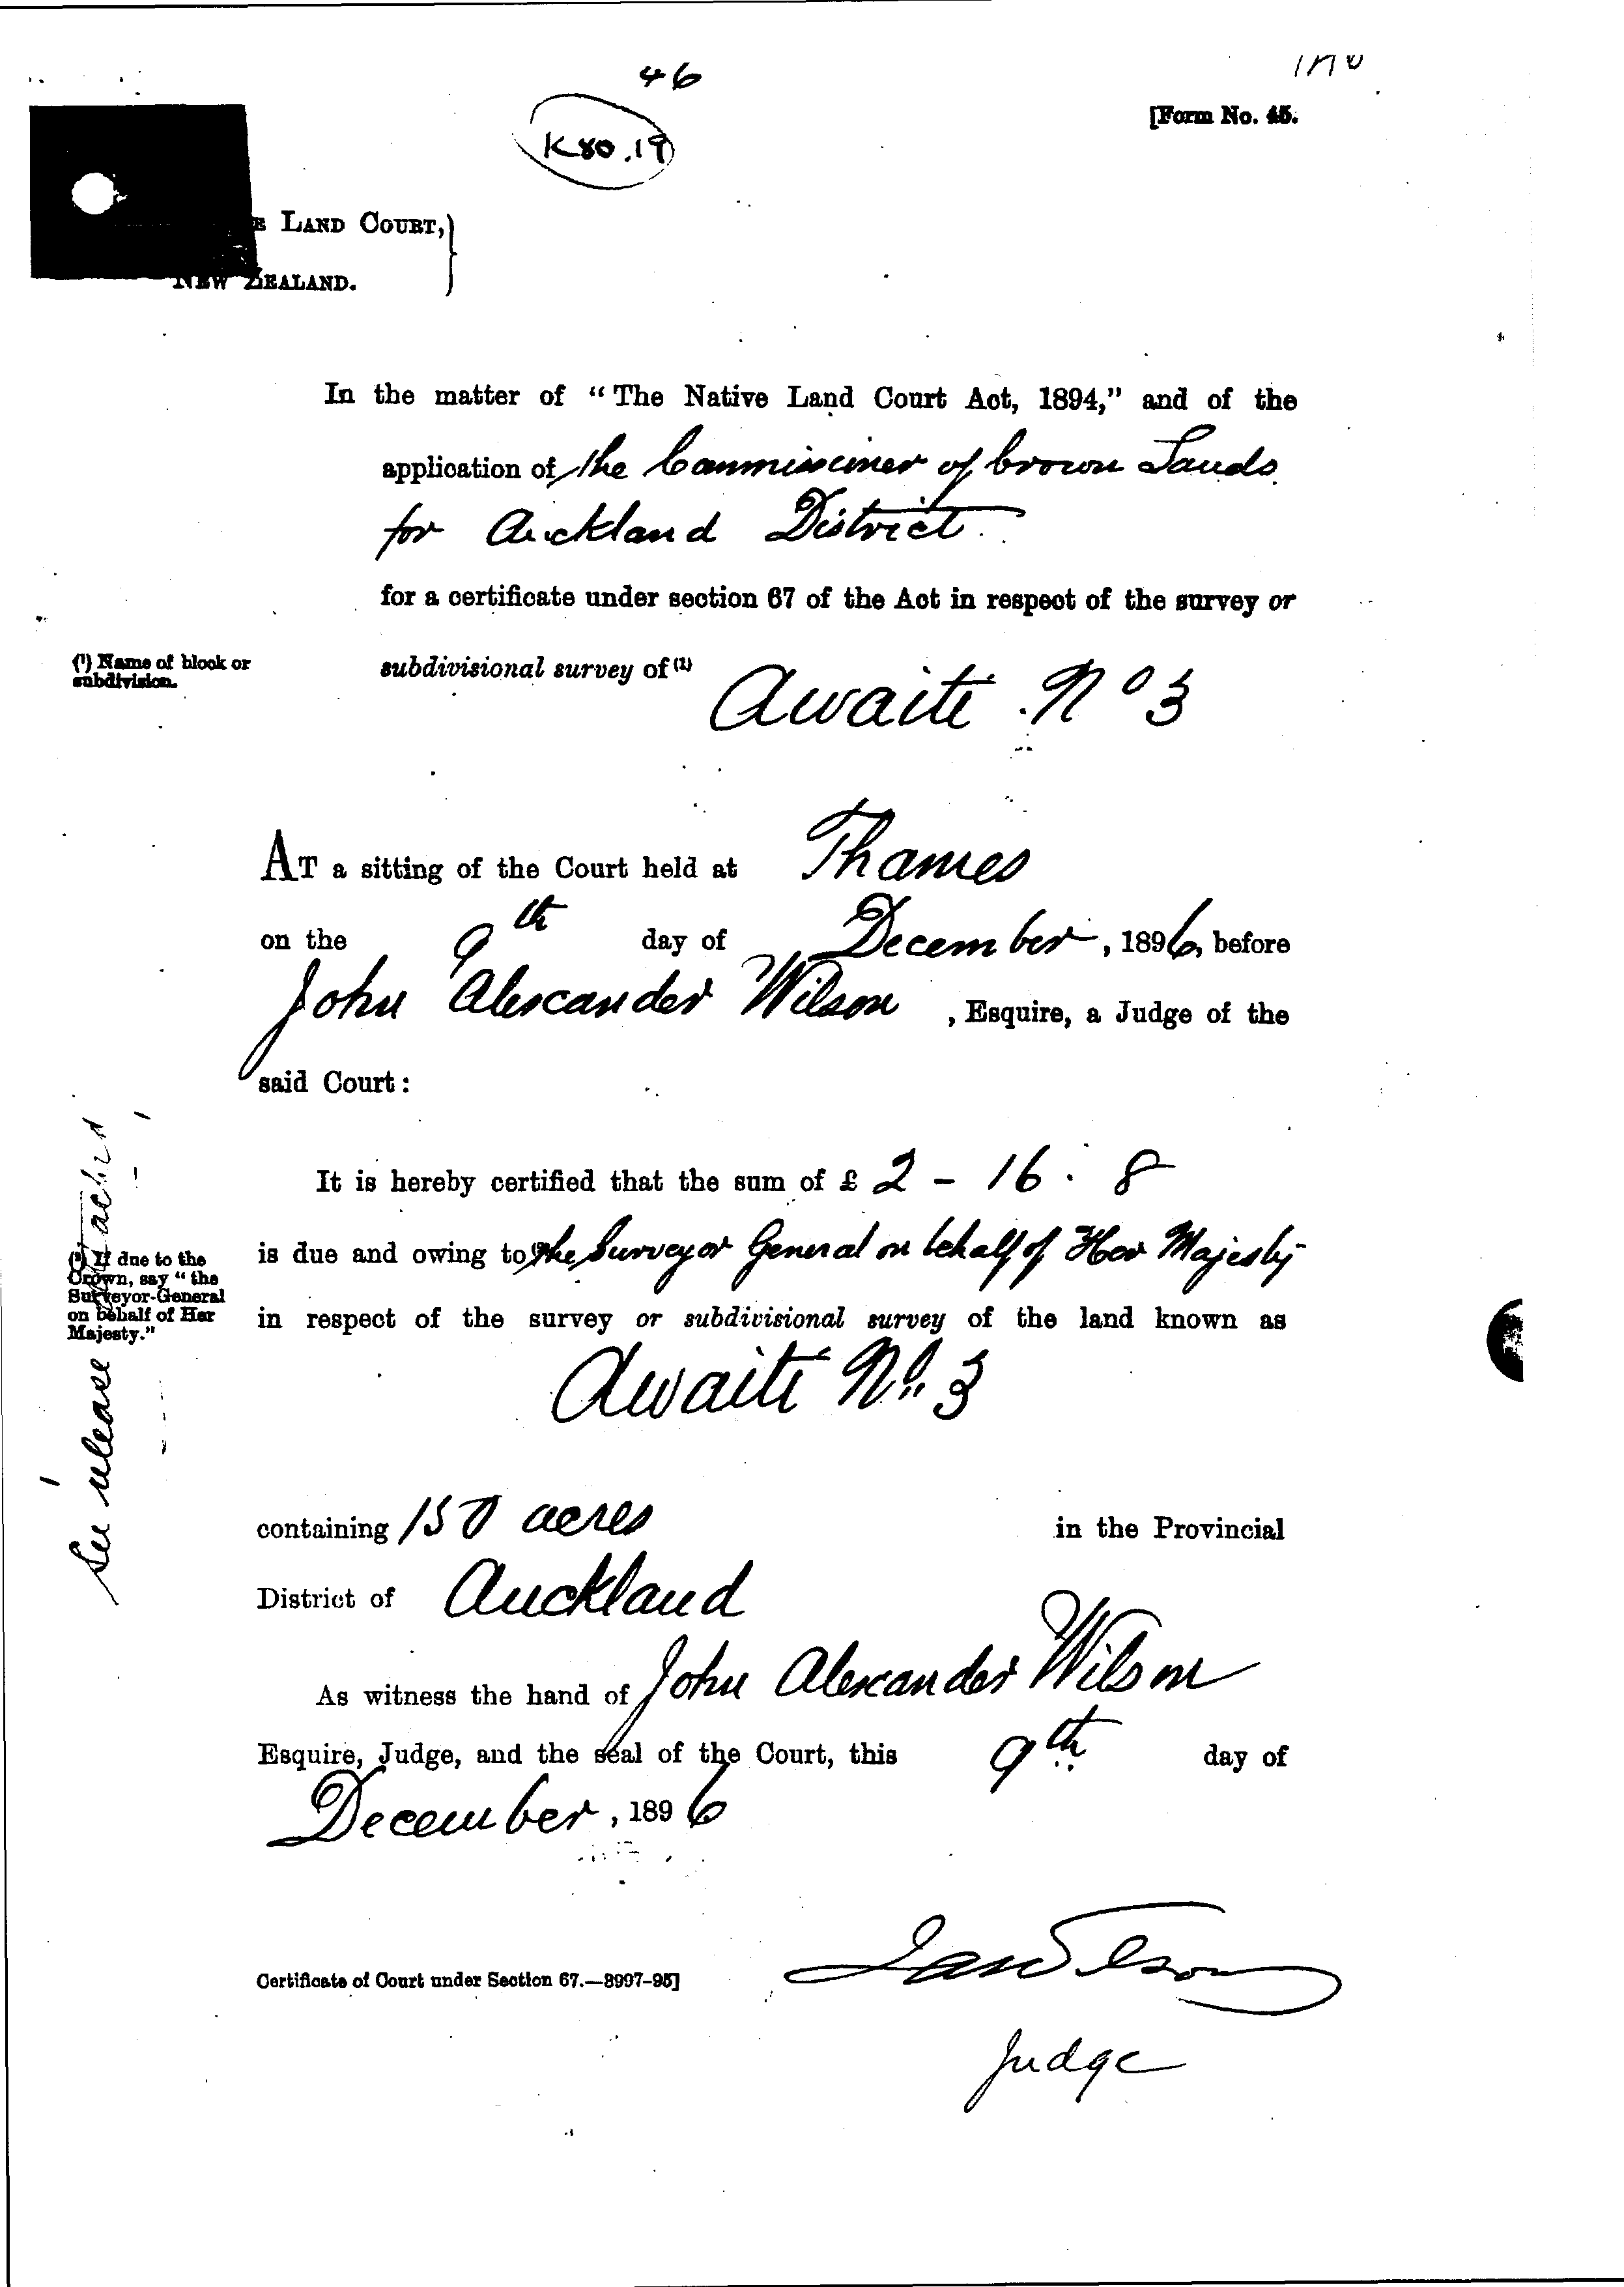 46
K80.19
[Form No. 45.
LAND COURT,
NEW ZEALAND.
In the matter of "The Native Land Court Act, 1894," and of the
application of the Commissioner of Crown Lands
for Auckland District.
for a certificate under section 67 of the Act in respect of the survey or
(¹) Name of block or
subdivision.
subdivisional survey of (1) Awaiti No 3
AT a sitting of the Court held at Thames
on the 9th day of December, 1896, before
John Alexander Wilson, Esquire, a Judge of the
said Court:
It is hereby certified that the sum of £ 2 - 16 . 8
is due and owing to the Surveyor General on behalf of Her Majesty
(²) If due to the
Crown, say "the
Surveyor-General
on behalf of Her
Majesty."
in respect of the survey or subdivisional survey of the land known as
Awaiti No. 3
See release attached
containing 150 acres in the Provincial
District of Auckland
As witness the hand of John Alexander Wilson
Esquire, Judge, and the seal of the Court, this 9th day of
December, 1896
Certificate of Court under Section 67.—3997-95]
JaWilson
Judge